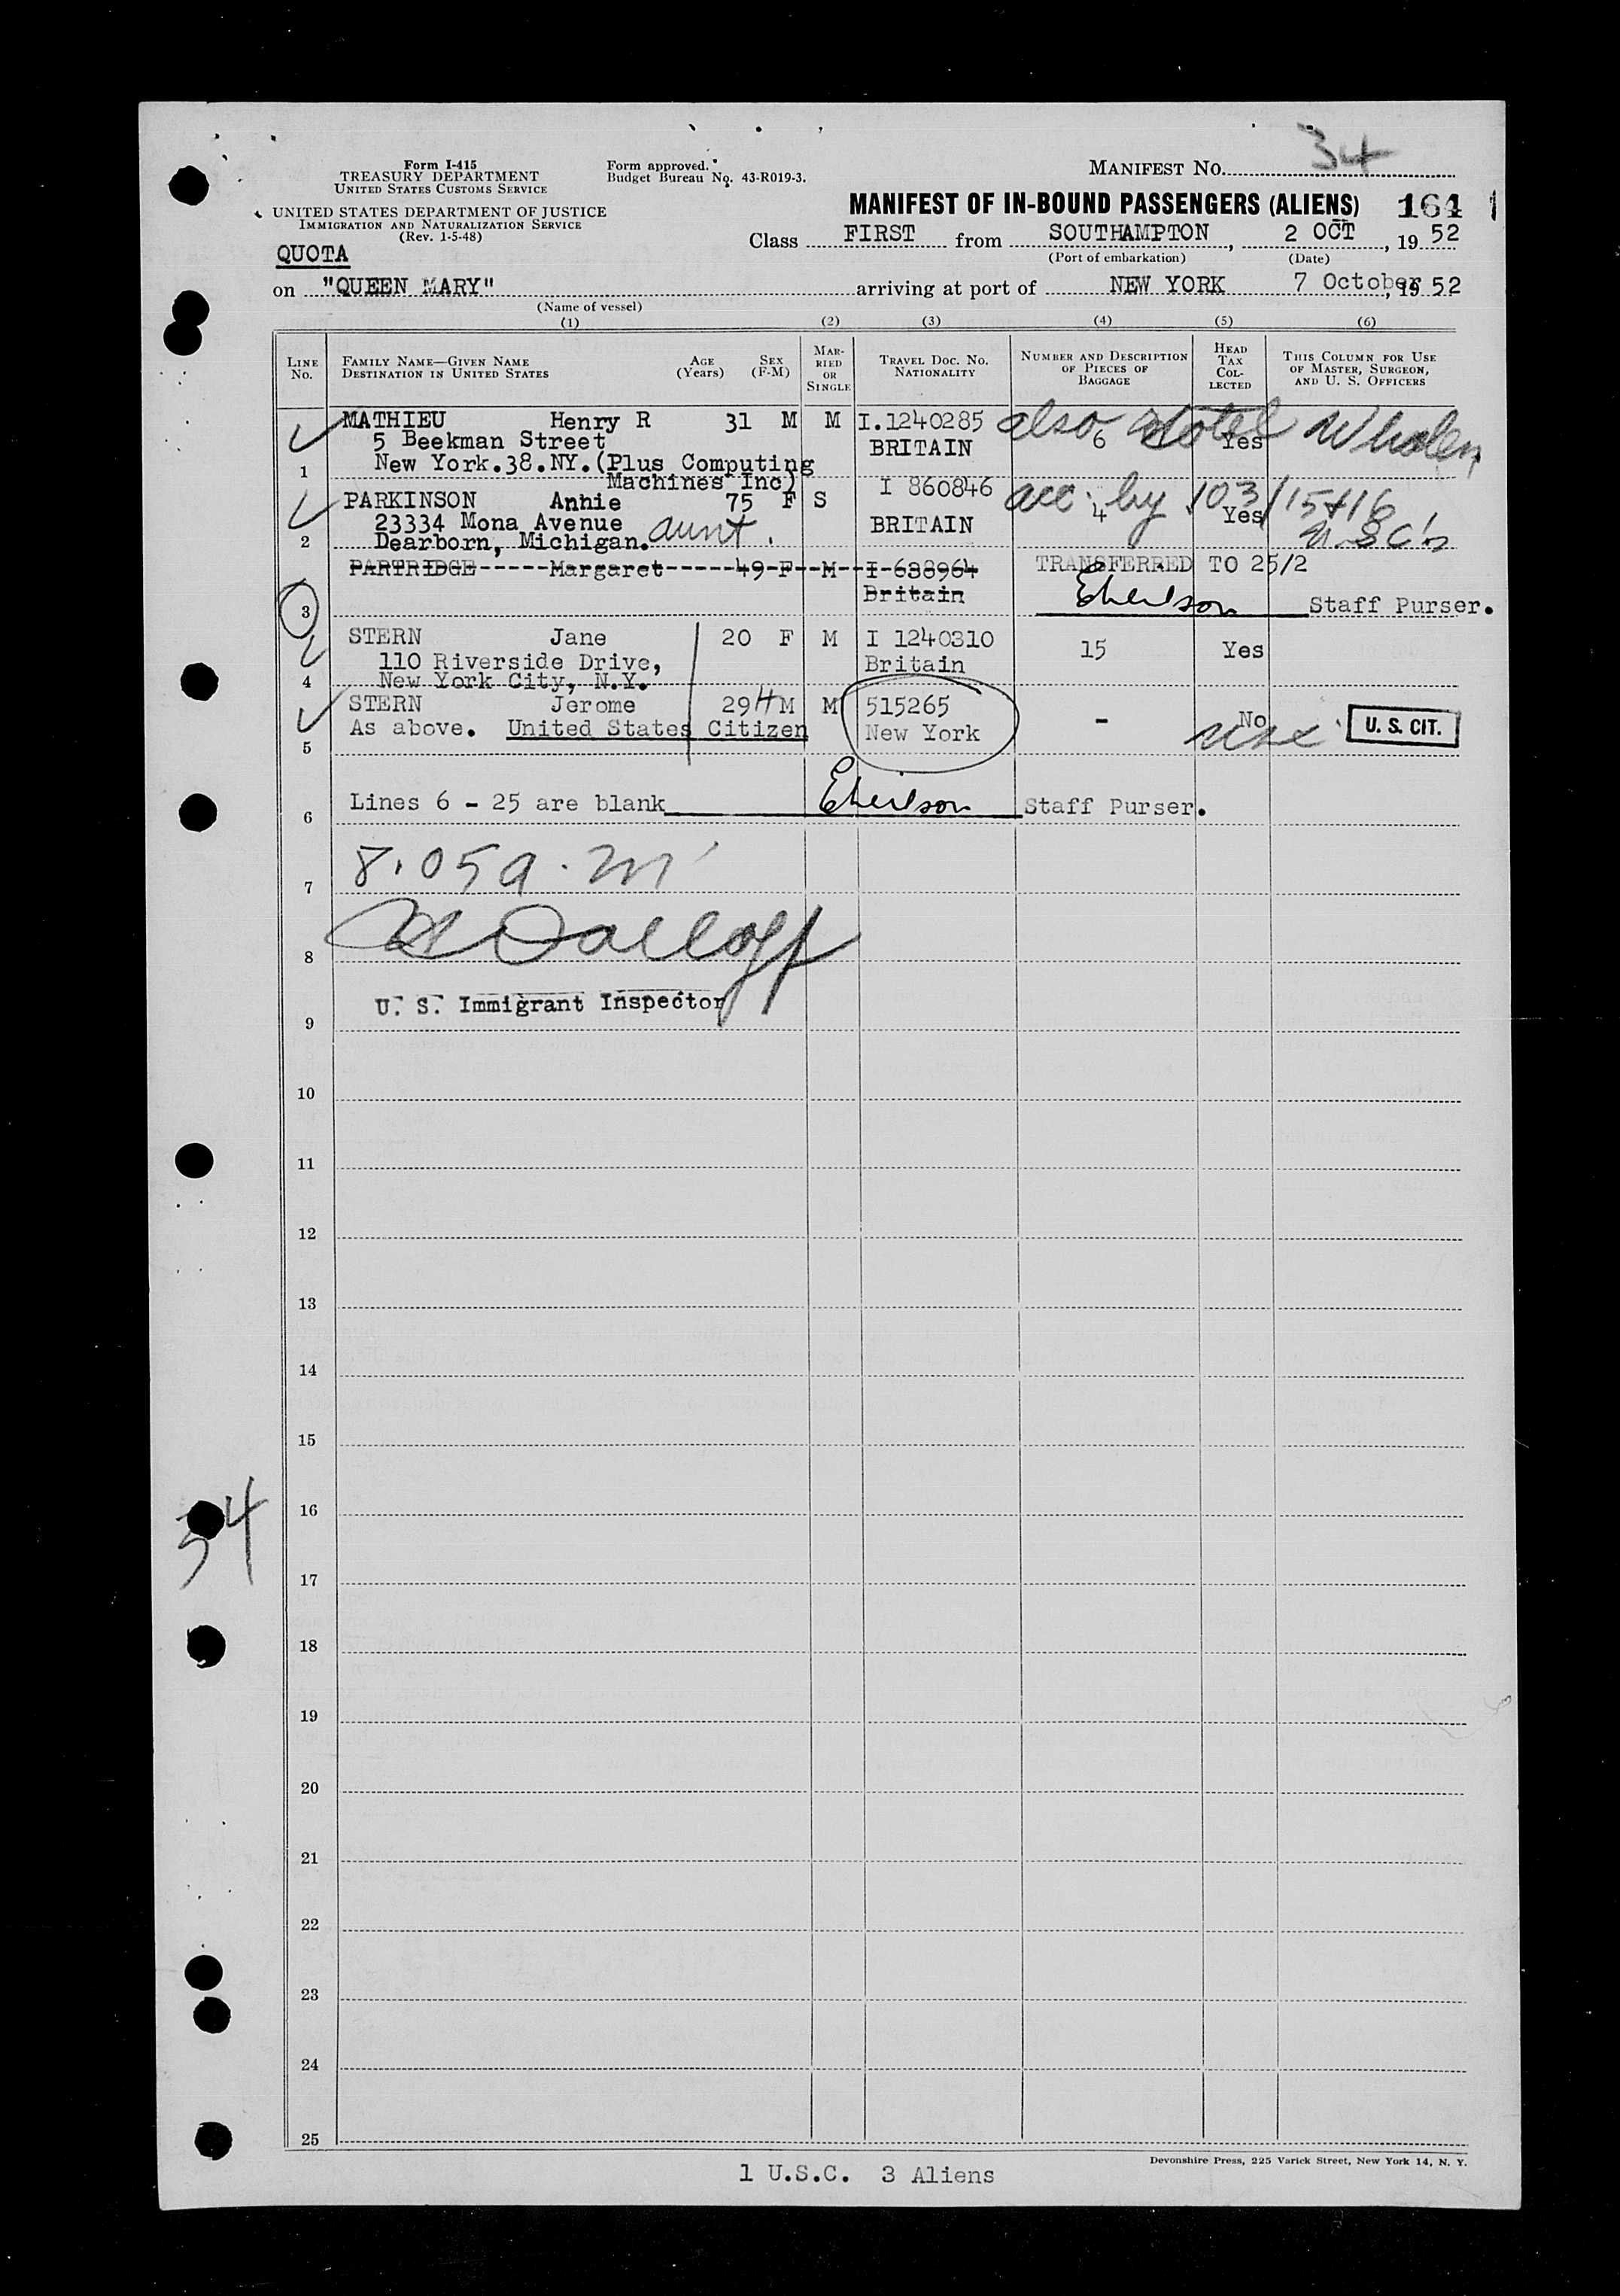 Form I-415
TREASURY DEPARTMENT
UNITED STATES CUSTOMS SERVICE
Form approved.
Budget Bureau No. 43-R019-3.
MANIFEST NO. 34
UNITED STATES DEPARTMENT OF JUSTICE
IMMIGRATION AND NATURALIZATION SERVICE
(Rev. 1-5-48)
MANIFEST OF IN-BOUND PASSENGERS (ALIENS) 164
QUOTA
Class FIRST from SOUTHAMPTON, 2 OCT, 19 52
(Port of embarkation) (Date)
on "QUEEN MARY" arriving at port of NEW YORK 7 October, 19 52
(Name of vessel)
(1) (2) (3) (4) (5) (6)
LINE No. FAMILY NAME—GIVEN NAME DESTINATION IN UNITED STATES AGE (Years) SEX (F-M) MARRIED OR SINGLE TRAVEL DOC. NO. NATIONALITY NUMBER AND DESCRIPTION OF PIECES OF BAGGAGE HEAD TAX COLLECTED THIS COLUMN FOR USE OF MASTER, SURGEON, AND U. S. OFFICERS
MATHIEU Henry R 31 M M I.1240285 also Hotel Whalen
5 Beekman Street BRITAIN 6 Yes
1 New York.38.NY.(Plus Computing
Machines Inc)
PARKINSON Annie 75 F S I 860846 acc. by 103/15+16
23334 Mona Avenue aunt. BRITAIN 4 Yes U.S.C's
2 Dearborn, Michigan.
PARTRIDGE-----Margaret-----49-F--M--I-638964 TRANSFERRED TO 25/2
Britain
3 Staff Purser.
STERN Jane 20 F M I 1240310 15 Yes
110 Riverside Drive, Britain
4 New York City, N.Y.
STERN Jerome 29 M M 515265 - No U. S. CIT.
As above. United States Citizen New York
5
Lines 6 - 25 are blank Staff Purser.
6
8.05 a.m
7
8
U. S. Immigrant Inspector
9
10
11
12
13
14
15
16
34
17
18
19
20
21
22
23
24
25
Devonshire Press, 225 Varick Street, New York 14, N. Y.
1 U.S.C. 3 Aliens